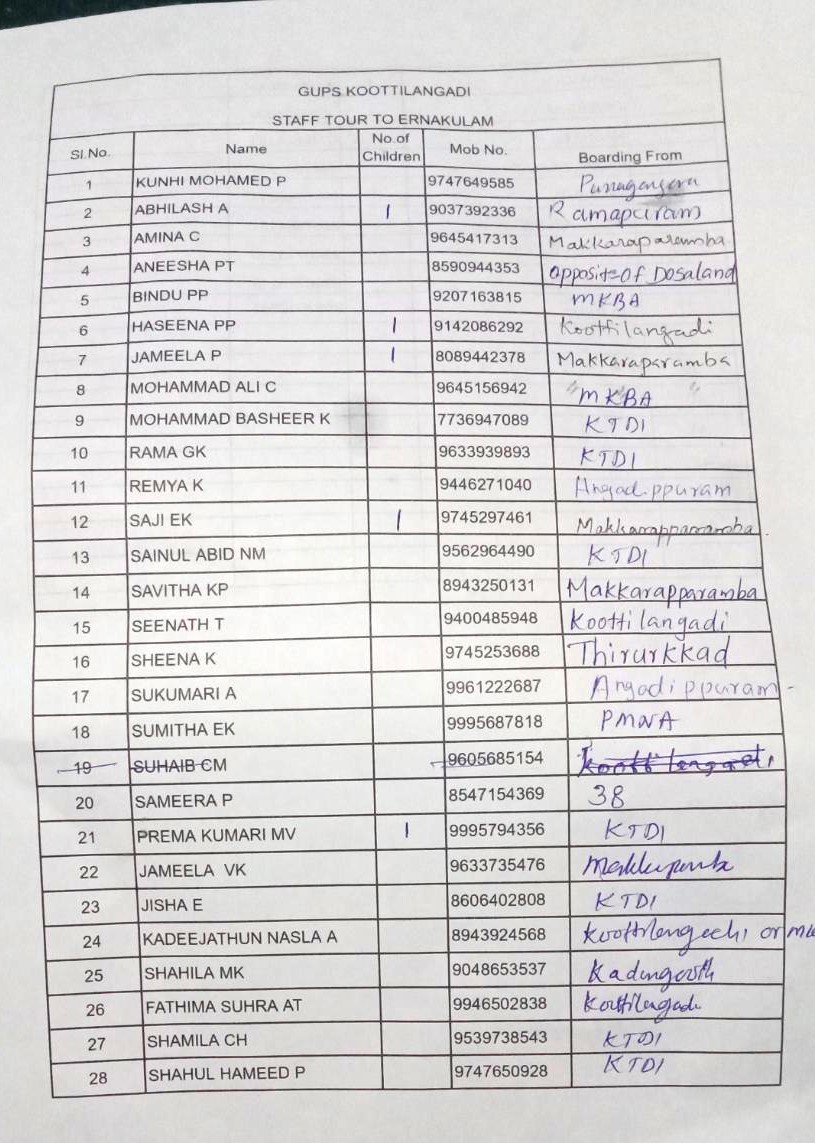 GUPS KOOTTILANGADI
STAFF TOUR TO ERNAKULAM
Sl.No. Name No.of Children Mob No. Boarding From
1 KUNHI MOHAMED P 9747649585
2 ABHILASH A 1 9037392336 Ramapuram
3 AMINA C 9645417313 Makkaraparamba
4 ANEESHA PT 8590944353 Opposite of Dosaland
5 BINDU PP 9207163815 MKBA
6 HASEENA PP 1 9142086292 Koottilangadi
7 JAMEELA P 1 8089442378 Makkaraparamba
8 MOHAMMAD ALI C 9645156942 MKBA
9 MOHAMMAD BASHEER K 7736947089 KTDI
10 RAMA GK 9633939893 KTDI
11 REMYA K 9446271040 Angadippuram
12 SAJI EK 1 9745297461 Makkarapparamba
13 SAINUL ABID NM 9562964490 KTDI
14 SAVITHA KP 8943250131 Makkarapparamba
15 SEENATH T 9400485948 Koottilangadi
16 SHEENA K 9745253688 Thirurkkad
17 SUKUMARI A 9961222687 Angadippuram
18 SUMITHA EK 9995687818 PMNA
19 SUHAIB CM 9605685154
20 SAMEERA P 8547154369 38
21 PREMA KUMARI MV 1 9995794356 KTDI
22 JAMEELA VK 9633735476
23 JISHA E 8606402808 KTDI
24 KADEEJATHUN NASLA A 8943924568 or
25 SHAHILA MK 9048653537
26 FATHIMA SUHRA AT 9946502838
27 SHAMILA CH 9539738543 KTDI
28 SHAHUL HAMEED P 9747650928 KTDI